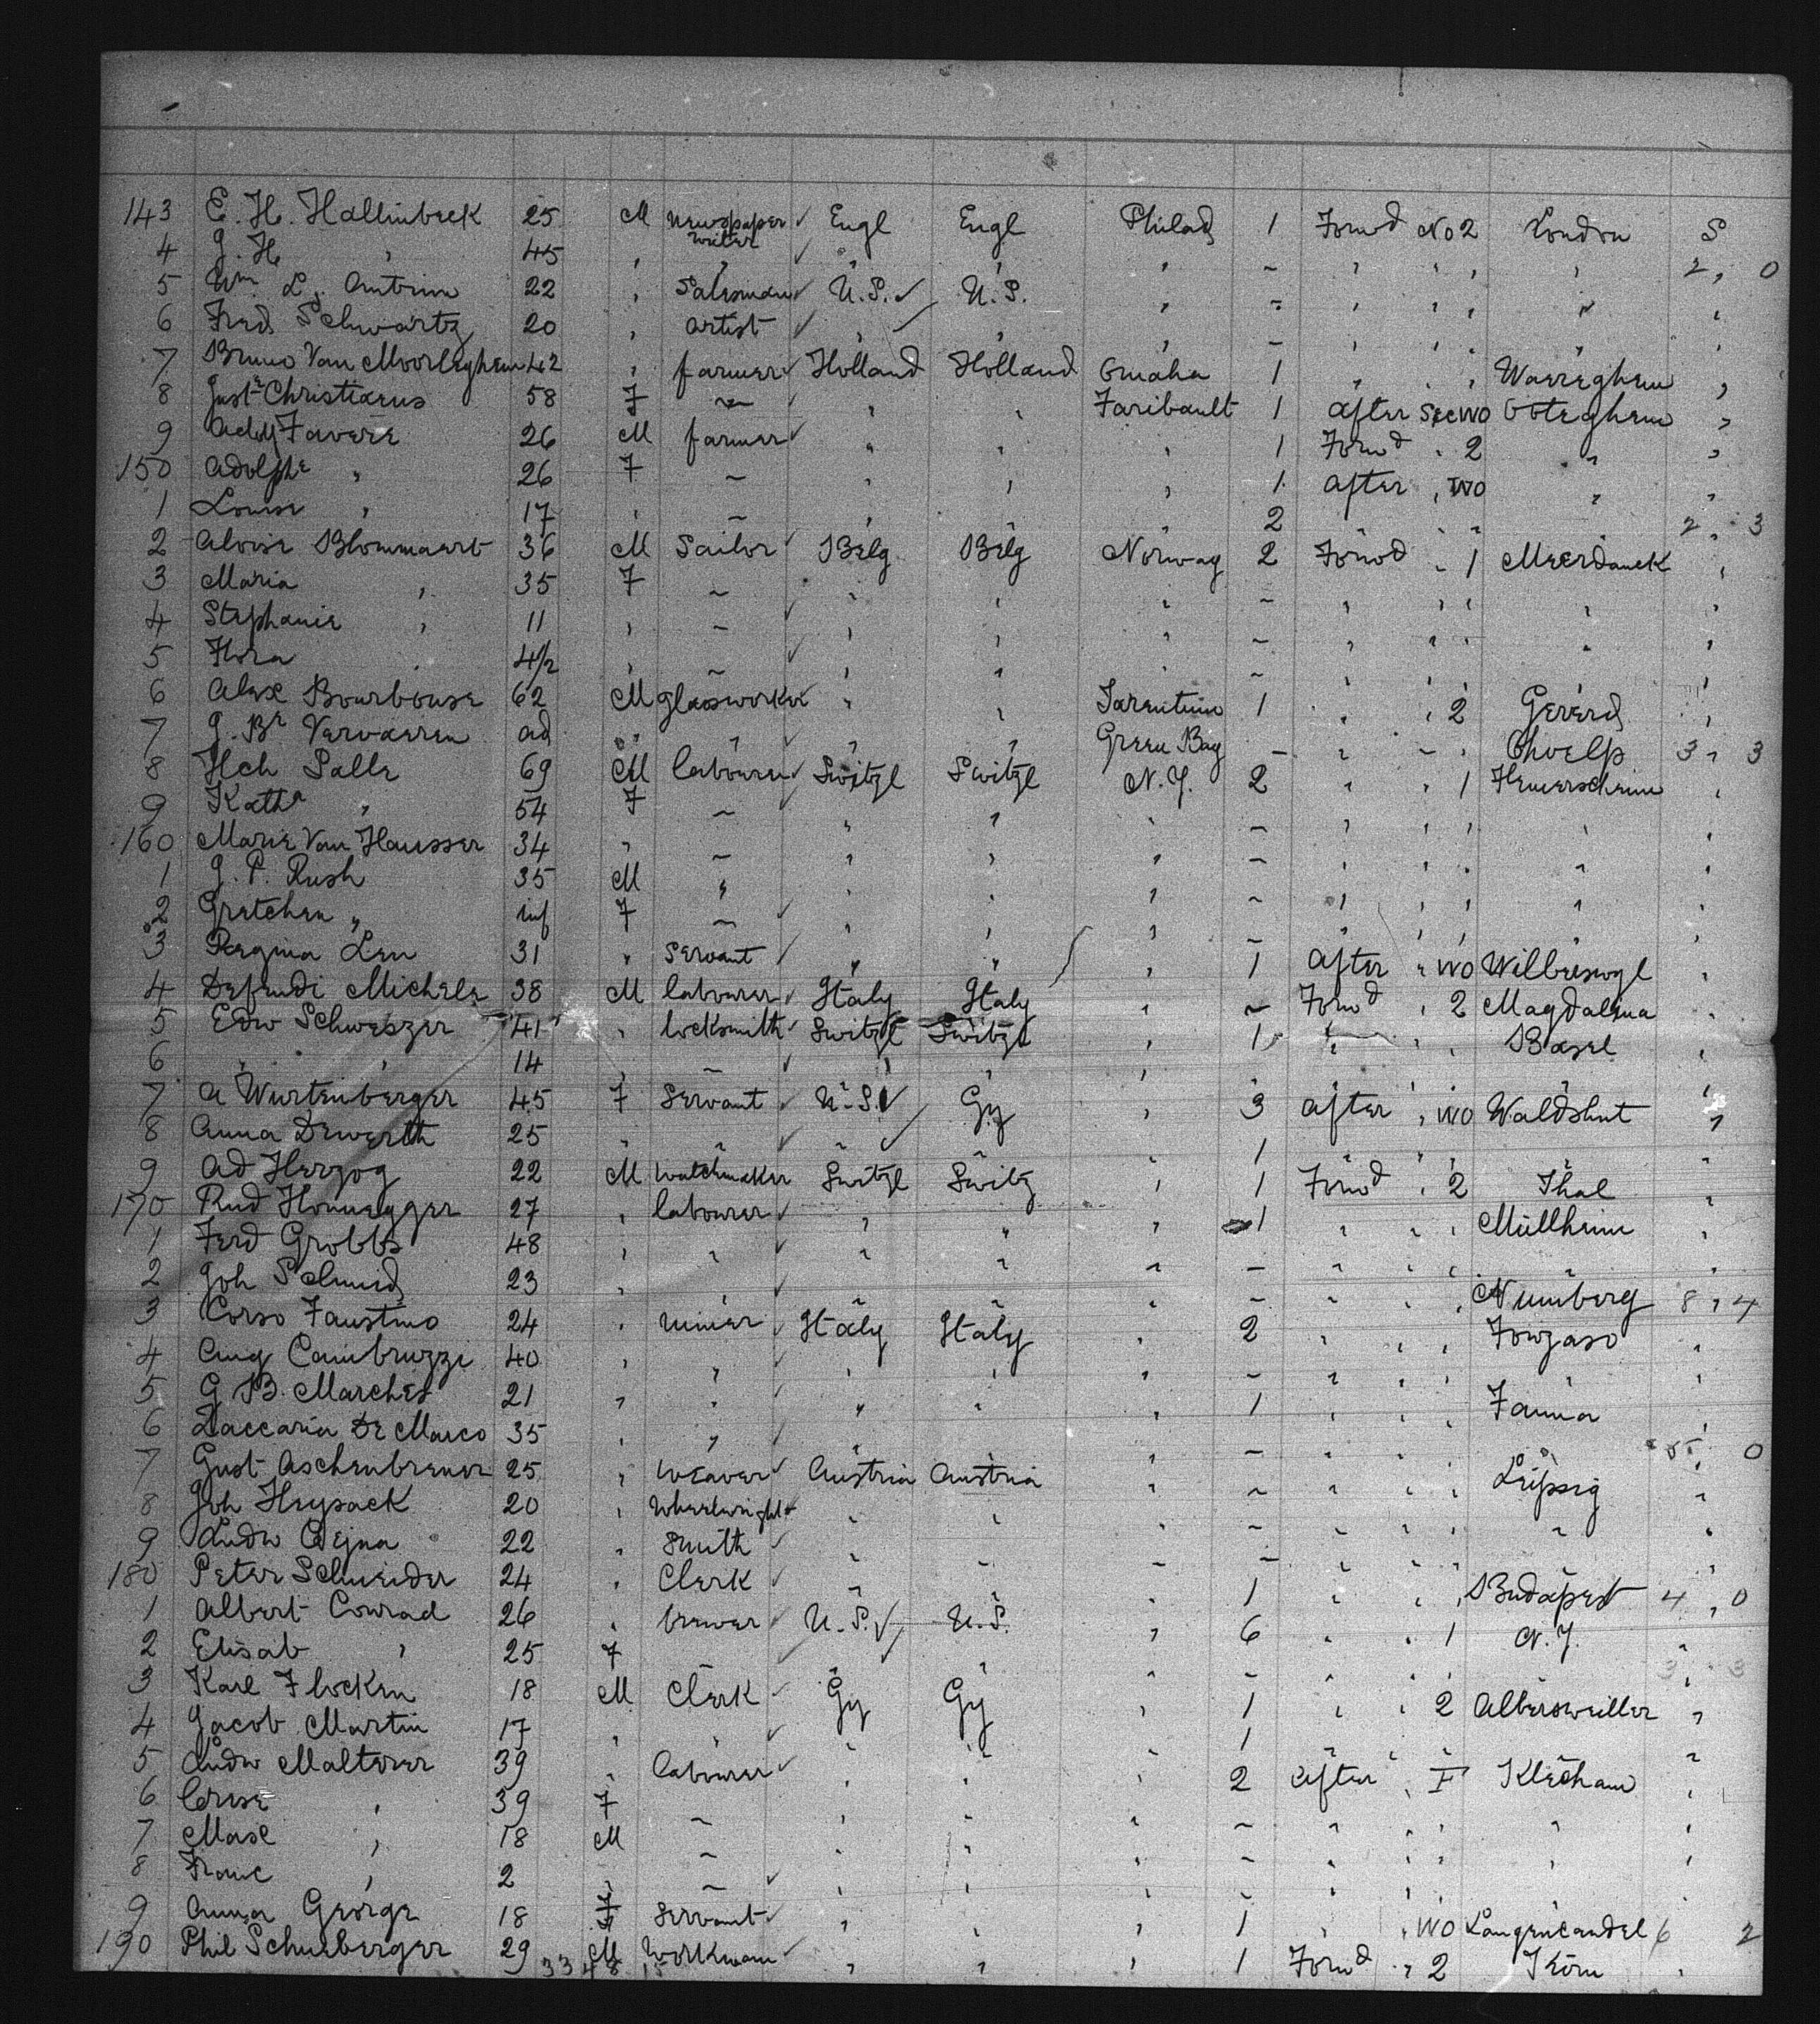 143 E. H. Hallinbeck 25 M Newspaper writer ✓ Engl Engl Philad 1 Forwd No 2 London S
4 G. H. " 45 " " ✓ " " " ~ " " " " 2, 0
5 Wm L. Antrim 22 " Salesman ✓ U.S. ✓ U.S. " ~ " " " " "
6 Fred Schwartz 20 " artist ✓ " " " ~ " " " " "
7 Bruno Van Moorleghem 42 " farmer ✓ Holland Holland Omaha 1 " " " Waereghem "
8 Christiaens 58 F ~ ✓ " " Faribault 1 after Sec WO Oteghem "
9 Favere 26 M farmer ✓ " " " 1 Forwd " 2 " "
150 Adolphe " 26 F ~ " " " 1 after " WO " "
1 Louise " 17 " ~ " " " 2 " " " 2, 3
2 Aloise Blommaert 36 M Sailor ✓ Belg Belg Norway 2 Forwd " 1 Meerdonck "
3 Maria " 35 F ~ ✓ " " " ~ " " " " "
4 Stephanie " 11 " ~ ✓ " " " ~ " " " " "
5 Flora " 4/2 " ~ ✓ " " " ~ " " " " "
6 Alex Bourbouse 62 M glassworker ✓ " " Tarentum 1 " " 2 "
7 Vervaeren ad " " " " Green Bay ~ " ~ " 3, 3
8 Hch Salle 69 M labourer ✓ Switzl Switzl N. Y. 2 " " 1 "
9 Kath " 54 F ~ " " " ~ " " " " "
160 Marie Van Hausser 34 " ~ " " " ~ " " " " "
1 G. P. Rush 35 M " " " " ~ " " " " "
2 Gretchen " inf F ~ ✓ " " " ~ " " " " "
3 Regina Leu 31 " Servant ✓ " " " 1 After " WO "
4 Defendi Michele 38 M labourer ✓ Italy Italy " ~ Forwd " 2 Magdalena "
5 Edw Schweszer 41 " locksmith ✓ Switzl Switzl " 1 " " " Basel "
6 " " 14 " ~ " " " " " " "
7 A Wurtenberger 45 F Servant ✓ U.S. ✓ Gy " 3 after " WO Waldshut "
8 Anna Dewerth 25 " " ✓ " ✓ " " 1 " " " " "
9 Ad Herzog 22 M Watchmaker Switzl Switz " 1 Forwd " 2 Thal "
170 Rud Honnegger 27 " labourer ✓ " " " 1 " " " Müllheim "
1 Ferd Grobbs 48 " " ✓ " " " ~ " " " " "
2 Joh Schmid 23 " " ✓ " " " ~ " " " Nürnberg 8, 4
3 Corso Faustino 24 " miner ✓ Italy Italy " 2 " " " Fonzaso "
4 Ang Cambruzzi 40 " " ✓ " " " ~ " " " " "
5 G B. Marches 21 " " ✓ " " " 1 " " " Fanna "
6 Zaccaria De Marco 35 " " ✓ " " " ~ " " " " 5, 0
7 Gust Aschenbrener 25 " Weaver ✓ Austria Austria " ~ " " " Leipsig "
8 Joh Heysack 20 " Wheelwright ✓ " " " ~ " " " " "
9 Ludw Cejna 22 " Smith ✓ " " " ~ " " " " "
180 Peter Schneider 24 " Clerk ✓ " " " 1 " " " Budapest 4, 0
1 Albert Conrad 26 " brewer ✓ U.S. ✓ U.S. " 6 " " 1 N. Y. "
2 Elisab " 25 F ~ " " " ~ " " " " 3, 3
3 Karl Flocken 18 M Clerk ✓ Gy Gy " 1 " " 2 Albersweiller "
4 Jacob Martin 17 " " ✓ " " " 1 " " " " "
5 Ludw Malterer 39 " labourer ✓ " " " 2 after " F "
6 " 39 F ~ " " " ~ " " " " "
7 Max " 18 M ~ " " " ~ " " " " "
8 Franc " 2 " ~ ✓ " " " ~ " " " " "
9 Anna George 18 F Servant ✓ " " " 1 " " WO Langencandel 6 2
190 Phil Schneberger 29 M Workman ✓ " " " 1 Forwd " 2 "
33 4 8 15